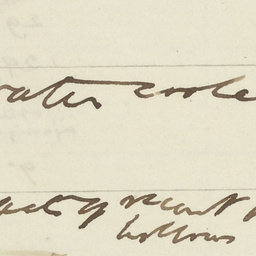 water coole
act of recent
hollows